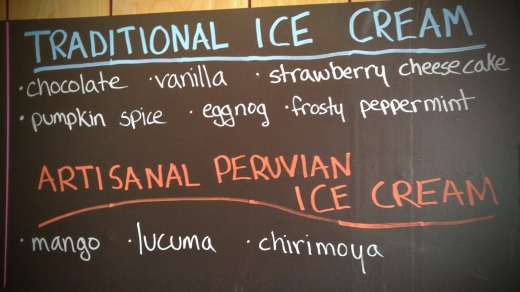 TRADITIONAL ICE CREAM
· chocolate · vanilla · strawberry cheesecake
· pumpkin spice · eggnog · frosty peppermint
ARTISANAL PERUVIAN
ICE CREAM
· mango · lucuma · chirimoya